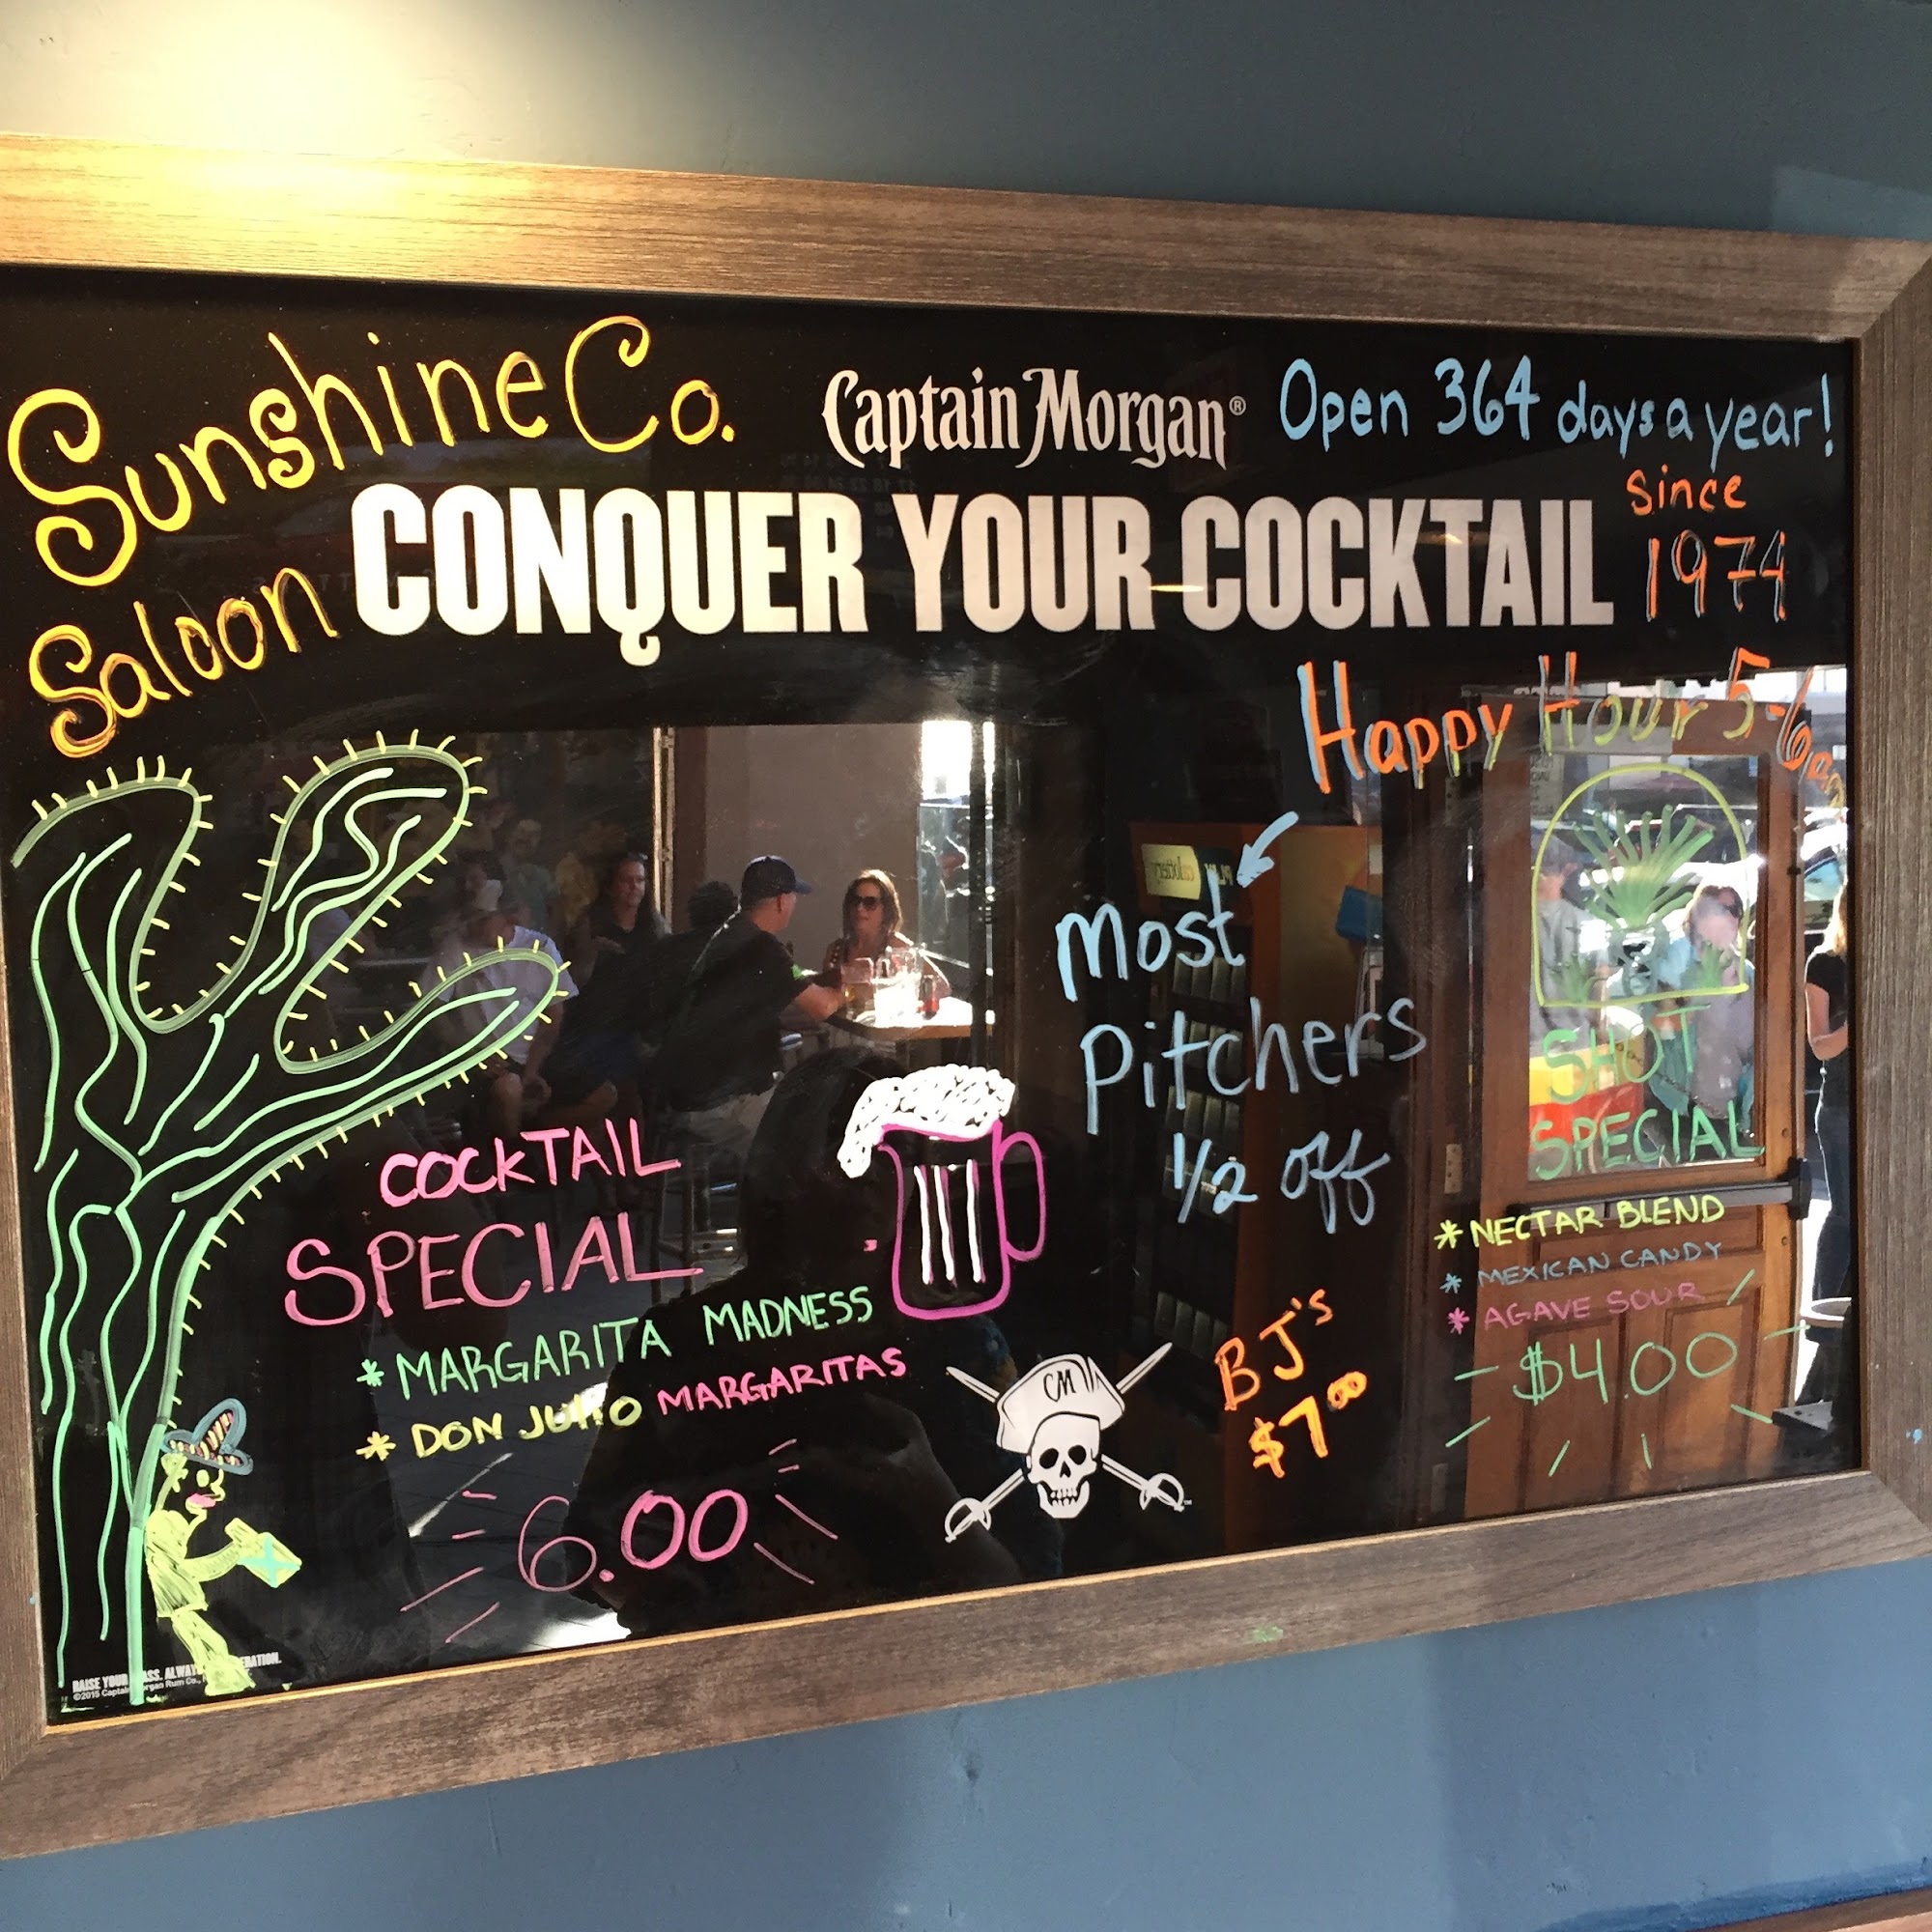 Sunshine Co.
Saloon
Captain Morgan®
CONQUER YOUR COCKTAIL
Open 364 days a year!
Since
1974
Happy Hour 5-6
Most
Pitchers
1/2 off
COCKTAIL
SPECIAL
* MARGARITA MADNESS
* DON JULIO MARGARITAS
6.00
CM
BJ's
$7.00
SHOT
SPECIAL
* NECTAR BLEND
* MEXICAN CANDY
* AGAVE SOUR
$4.00
RAISE YOUR
©2015 Captain Morgan Rum Co.,